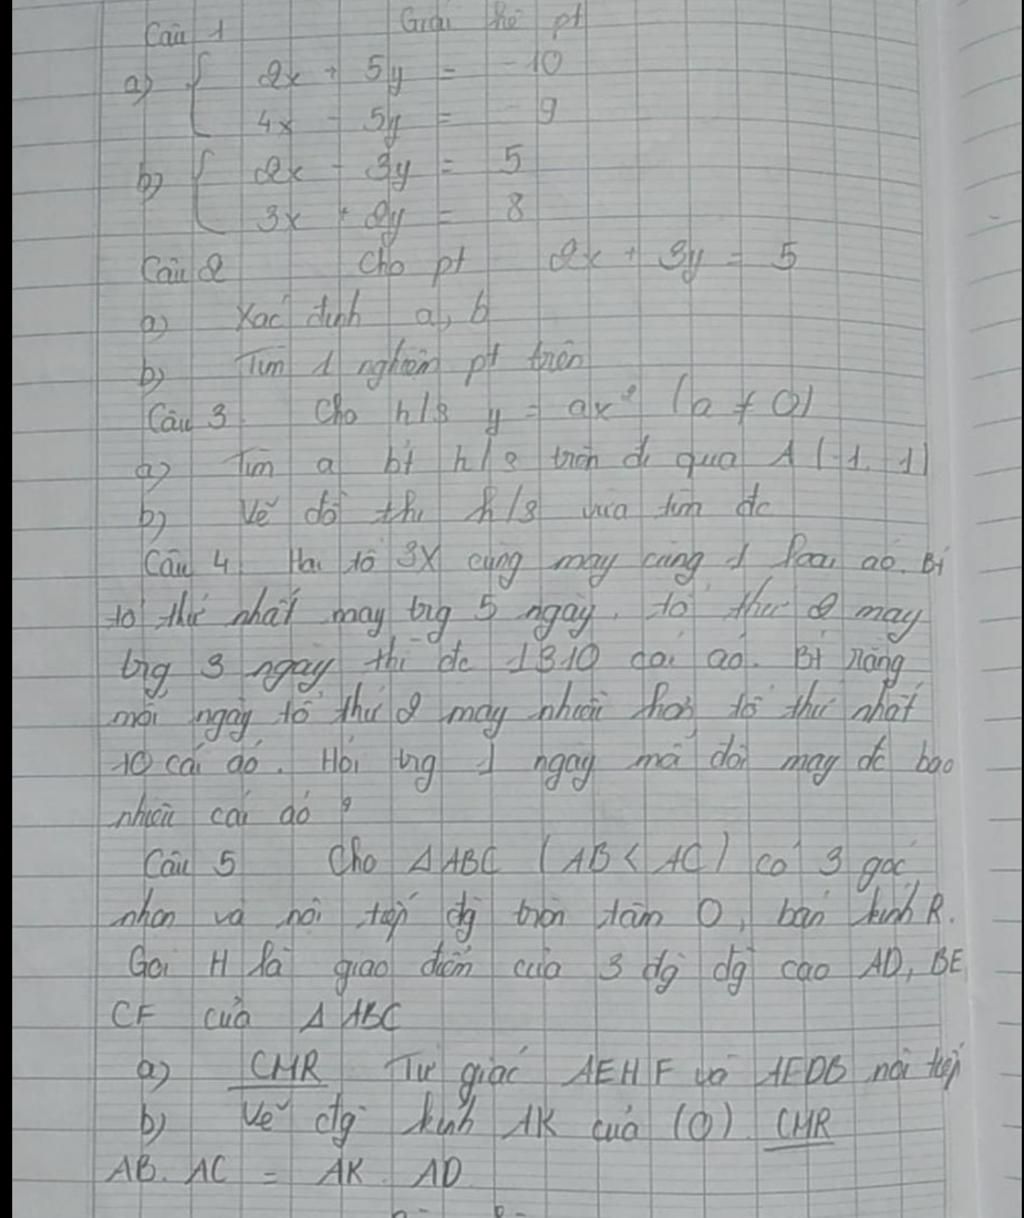 Câu 1 Giải hệ pt
a) { 2x + 5y = -10
4x - 5y = - 9
b) { 2x - 3y = 5
3x + 2y = 8
Câu 2 Cho pt 2x + 3y = 5
a) Xác định a, b
b) Tìm 1 nghiệm pt trên
Câu 3 Cho h/s y = ax² (a ≠ 0)
a) Tìm a bt h/s trên đi qua A (-1, 1)
b) Vẽ đồ thị h/s vừa tìm đc
Câu 4 Hai tổ SX cùng may cùng 1 loại áo. Bt
tổ thứ nhất may trg 5 ngày, tổ thứ 2 may
trg 3 ngày thì đc 1310 cái áo. Bt rằng
mỗi ngày tổ thứ 2 may nhiều hơn tổ thứ nhất
10 cái áo. Hỏi trg 1 ngày mỗi đội may đc bao
nhiêu cái áo ?
Câu 5 Cho Δ ABC (AB < AC) có 3 góc
nhọn và nội tiếp đg tròn tâm O, bán kính R.
Gọi H là giao điểm của 3 đg đg cao AD, BE
CF của Δ ABC
a) CMR Tứ giác AEHF và AEDB nội tiếp
b) Vẽ đg kính AK của (O) CMR
AB. AC = AK. AD